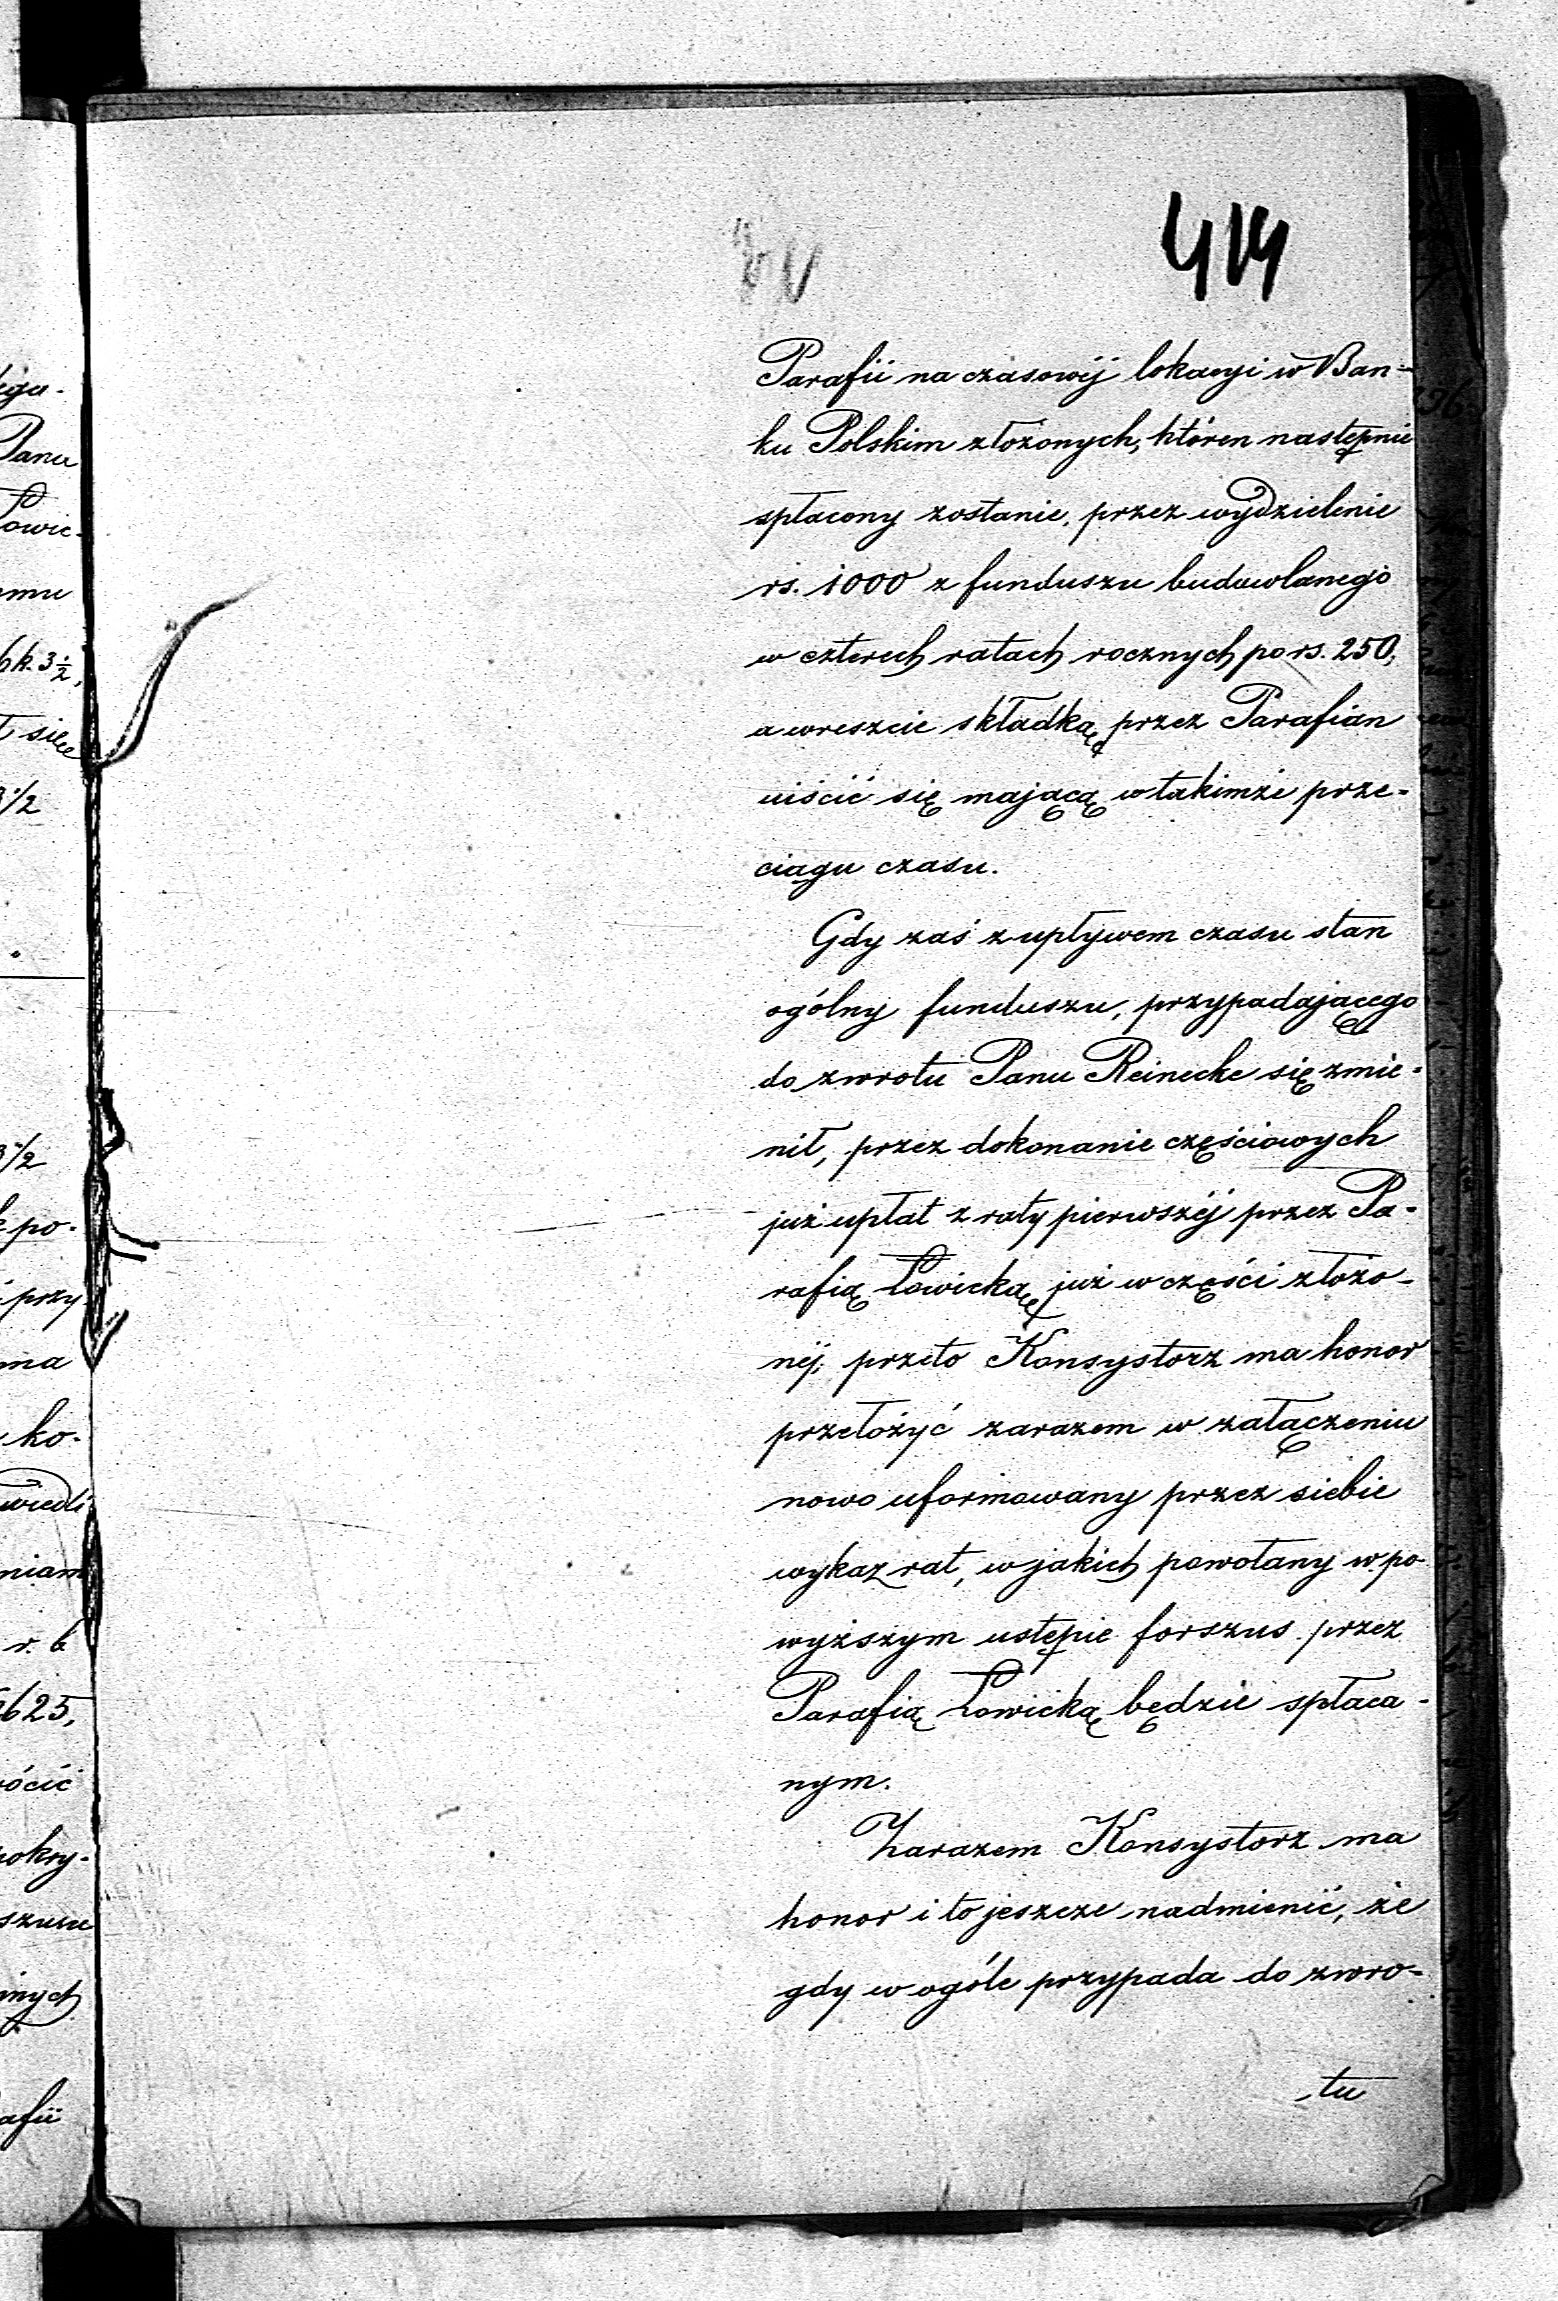 414
Parafii na czasowéj lokacyi w Ban-
ku Polskim złożonych, któren następnie
spłacony zostanie, przez wydzielenie
rs. 1000 z funduszu budowlanego
w czterech ratach rocznych po rs. 250,
a wreszcie składką przez Parafian
uiścić się mającą w takimże prze-
ciągu czasu.
Gdy zaś z upływem czasu stan
ogólny funduszu, przypadającego
do zwrotu Panu Reinecke się zmie-
nił, przez dokonanie częściowych
już upłat z raty pierwszéj przez Pa-
rafią Łowicką już w części złożo-
néj, przeto Konsystorz ma honor
przełożyć zarazem w załączeniu
nowo uformowany przez siebie
wykaz rat, w jakich powołany w po-
wyższym ustępie forszus przez
Parafią Łowicką będzie spłaca-
nym.
Zarazem Konsystorz ma
honor i to jeszcze nadmienić, że
gdy w ogóle przypada do zwro-
tu